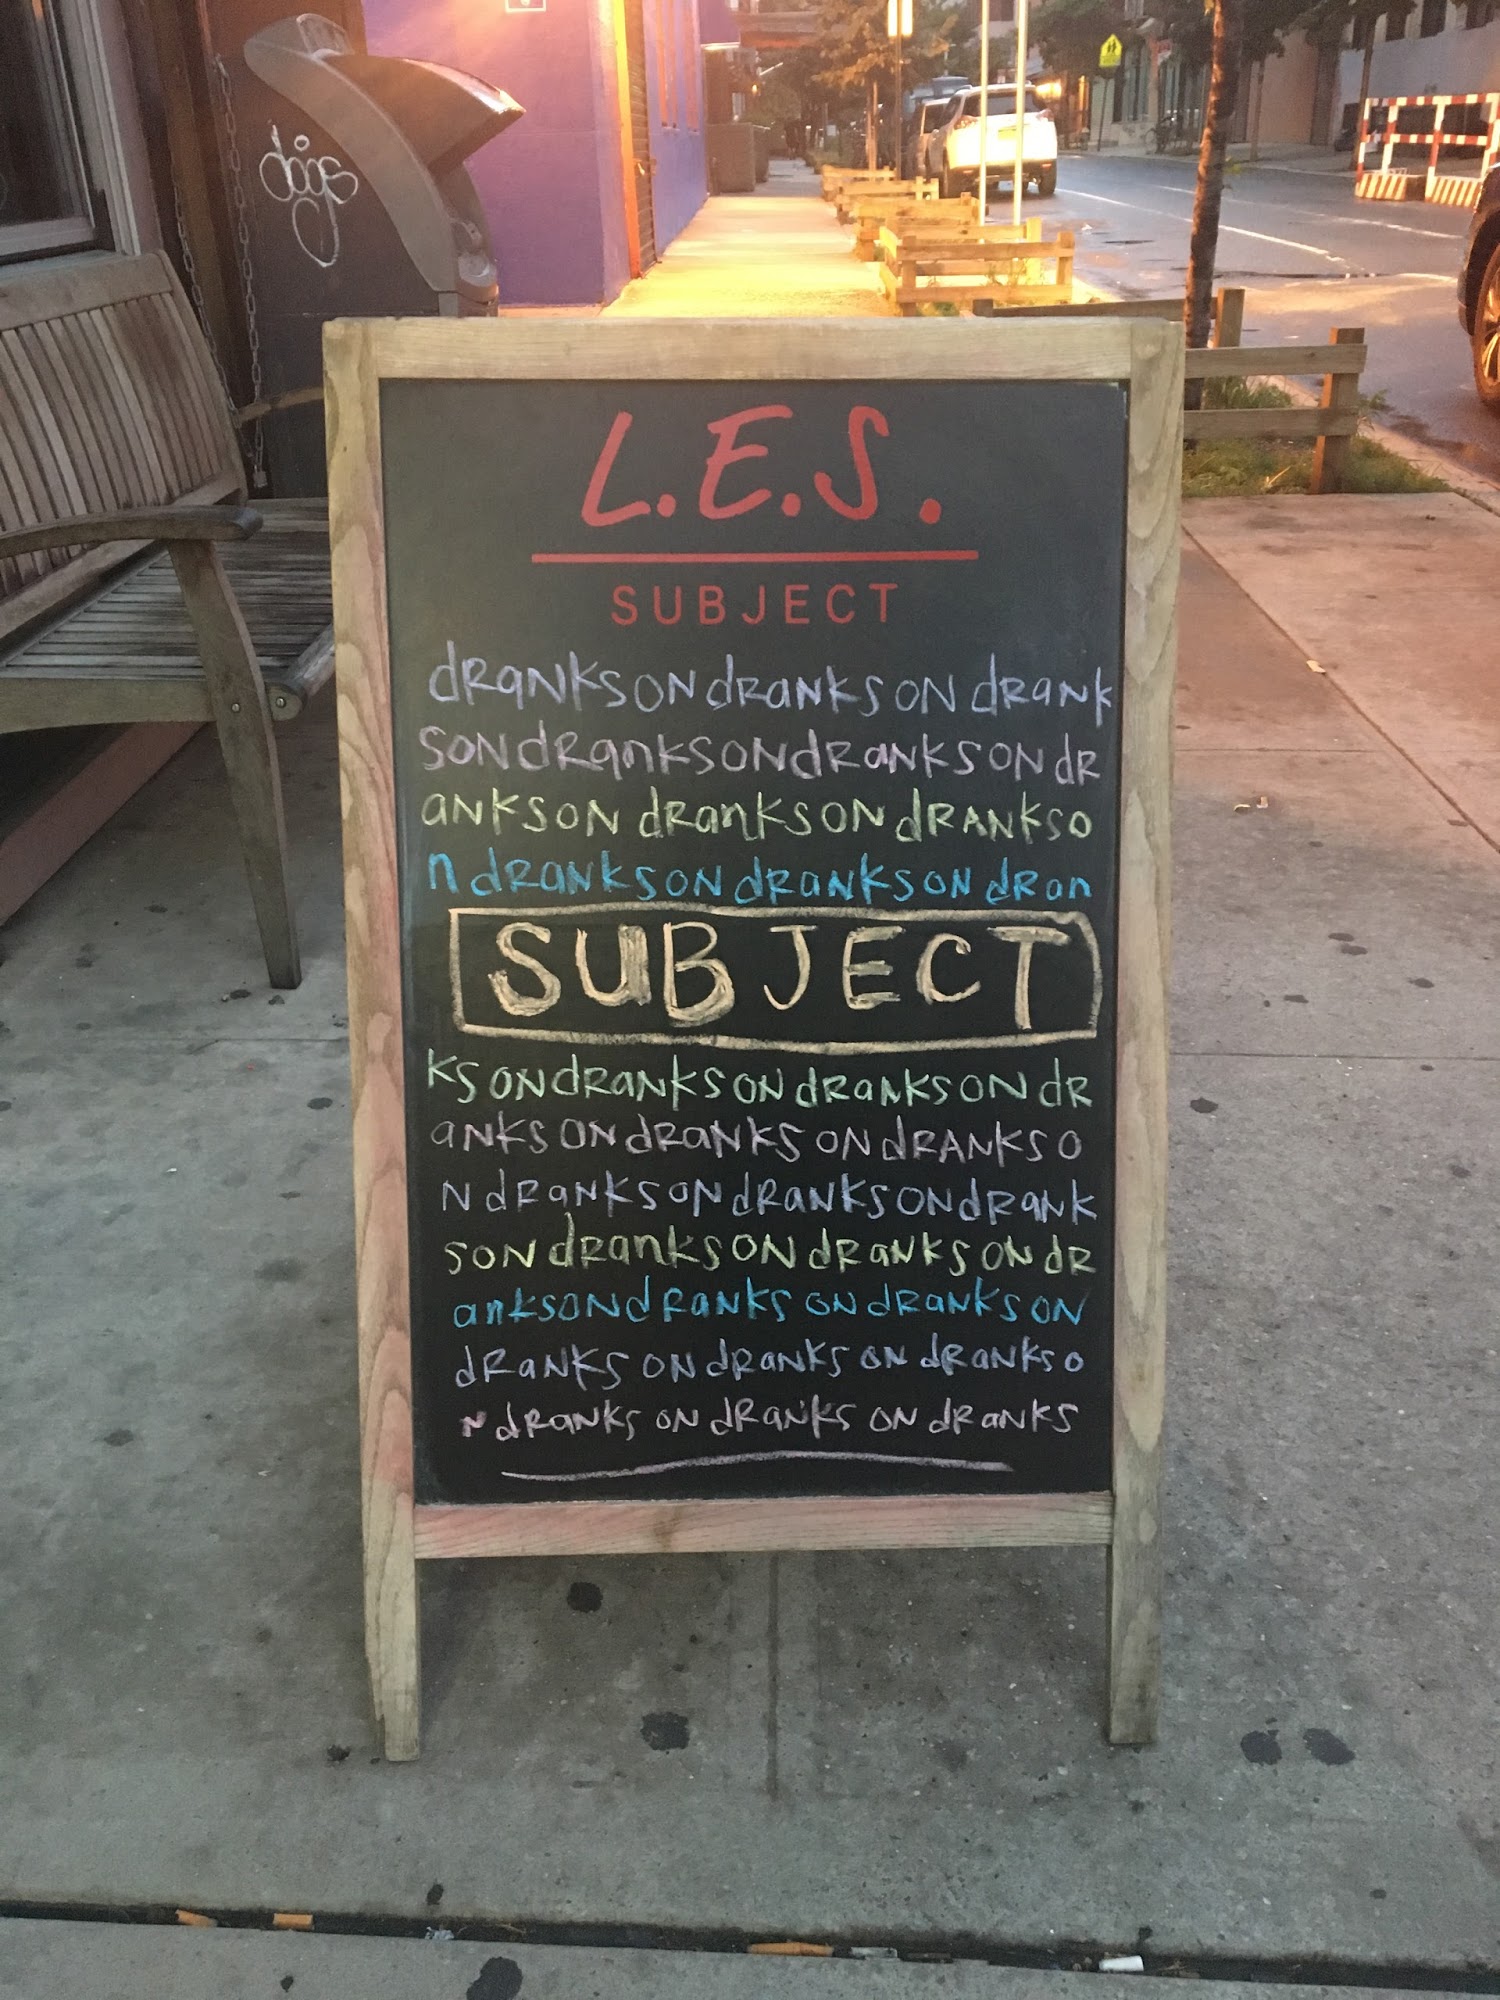 dogs
L.E.S.
SUBJECT
dRaNKSONdRaNKSONdRaNK
SONdRanKSONdRaNKSONdR
aNKSONdRanKSONdRANKSO
ndRaNKSONdRaNKSONdRan
SUBJECT
KSONdRaNKSONdRaNKSONdR
aNKSONdRaNKSONdRANKSO
NdRaNKSONdRaNKSONdRaNK
SONdRanKSONdRaNKSONdR
anKSONdRaNKSONdRaNKSON
dRaNKSONdRaNKSONdRaNKSO
NdRaNKSONdRaNKSONdRaNKS